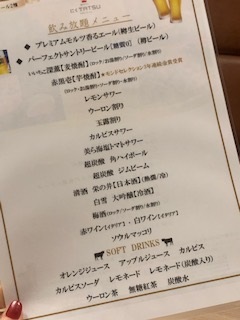 飲み放題メニュー
プレミアムモルツ香るエール(樽生ビール)
パーフェクトサントリービール(糖質0)(樽ビール)
いいちこ深薫【麦焼酎】(ロック/お湯割り/ソーダ割/水割り)
赤黒壱【芋焼酎】★モンドセレクション5年連続金賞受賞
(ロック・お湯割り/ソーダ割/水割り)
レモンサワー
ウーロン割り
玉露割り
カルピスサワー
美ら海塩トマトサワー
超炭酸 角ハイボール
超炭酸 ジムビーム
清酒 栄の井【日本酒】(熱燗/冷)
白雪 大吟醸【冷酒】
梅酒(ロック/ソーダ割り/水割り)
赤ワイン【イタリア】・白ワイン【イタリア】
ソウルマッコリ
SOFT DRINKS
オレンジジュース アップルジュース カルピス
カルピスソーダ レモネード レモネード(炭酸入り)
ウーロン茶 無糖紅茶 炭酸水